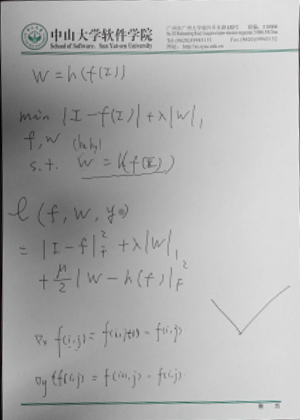 中山大学软件学院
School of Software, Sun Yat-sen University
W = h(f(I))
min |I - f(I)| + λ|W|₁
f, w
s.t. W = h(f(I))
ℓ(f, W, y)
= |I - f|²_F + λ|W|₁
+ μ/2 |W - h(f)|²_F
∇x f(i,j) = f(i,j+1) - f(i,j)
∇y f(i,j) = f(i+1,j) - f(i,j)